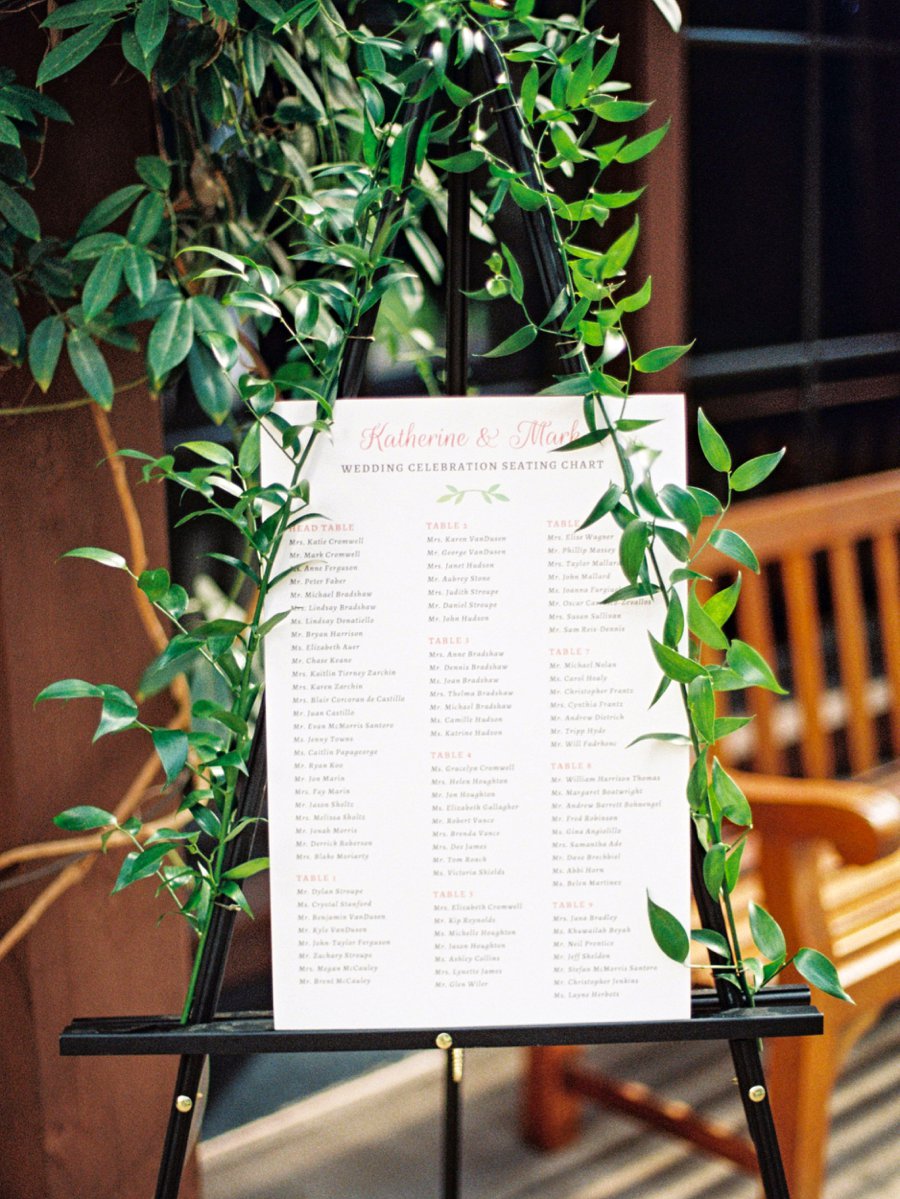 Katherine & Mark
WEDDING CELEBRATION SEATING CHART
HEAD TABLE
Mrs. Katie Cromwell
Mr. Mark Cromwell
Ms. Anne Ferguson
Mr. Peter Faber
Mr. Michael Bradshaw
Mrs. Lindsay Bradshaw
Ms. Lindsay Donatiello
Mr. Bryan Harrison
Ms. Elizabeth Auer
Mr. Chase Keane
Mrs. Kaitlin Tierney Zarchin
Mrs. Karen Zarchin
Mrs. Blair Corcoran de Castillo
Mr. Juan Castillo
Mr. Evan McMorris Santoro
Ms. Jenny Towns
Ms. Caitlin Papageorge
Mr. Ryan Koo
Mr. Jon Marin
Mrs. Fay Marin
Mr. Jason Sholtz
Mrs. Melissa Sholtz
Mr. Jonah Morris
Mr. Derrick Roberson
Mrs. Blake Moriarty
TABLE 1
Mr. Dylan Stroupe
Ms. Crystal Stanford
Mr. Benjamin VanDusen
Mr. Kyle VanDusen
Mr. John-Taylor Ferguson
Mr. Zachary Stroupe
Mrs. Megan McCauley
Mr. Brent McCauley
TABLE 2
Mrs. Karen VanDusen
Mr. George VanDusen
Ms. Janet Hudson
Mr. Aubrey Stone
Mrs. Judith Stroupe
Mr. Daniel Stroupe
Mr. John Hudson
TABLE 3
Mrs. Anne Bradshaw
Mr. Dennis Bradshaw
Ms. Joan Bradshaw
Mrs. Thelma Bradshaw
Mr. Michael Bradshaw
Ms. Camille Hudson
Ms. Katrine Hudson
TABLE 4
Ms. Gracelyn Cromwell
Mrs. Helen Houghton
Mr. Jon Houghton
Ms. Elizabeth Gallagher
Mr. Robert Vance
Mrs. Brenda Vance
Ms. Dee James
Mr. Tom Roach
Ms. Victoria Shields
TABLE 5
Mrs. Elizabeth Cromwell
Mr. Kip Reynolds
Ms. Michelle Houghton
Mr. Jason Houghton
Ms. Ashley Collins
Mrs. Lynette James
Mr. Glen Wiler
TABLE
Mrs. Elise Wagner
Mr. Phillip Massey
Mrs. Taylor Mallard
Mr. John Mallard
Ms. Joanna
Mr. Oscar
Mrs. Susan Sullivan
Mr. Sam Reis-Dennis
TABLE 7
Mr. Michael Nolan
Ms. Carol Healy
Mr. Christopher Frantz
Mrs. Cynthia Frantz
Mr. Andrew Dietrich
Mr. Tripp Hyde
Mr. Will
TABLE 8
Mr. William Harrison Thomas
Ms. Margaret Boatwright
Mr. Andrew Barrett Bohnengel
Mr. Fred Robinson
Ms. Gina Angiolillo
Mrs. Samantha Ade
Mr. Dave Brechbiel
Ms. Abbi Horn
Ms. Belen Martinez
TABLE 9
Mrs. June Bradley
Ms. Khuwailah Beyah
Mr. Neil Prentice
Mr. Jeff Sheldon
Mr. Stefan McMorris Santoro
Mr. Christopher Jenkins
Ms. Layne Herbots